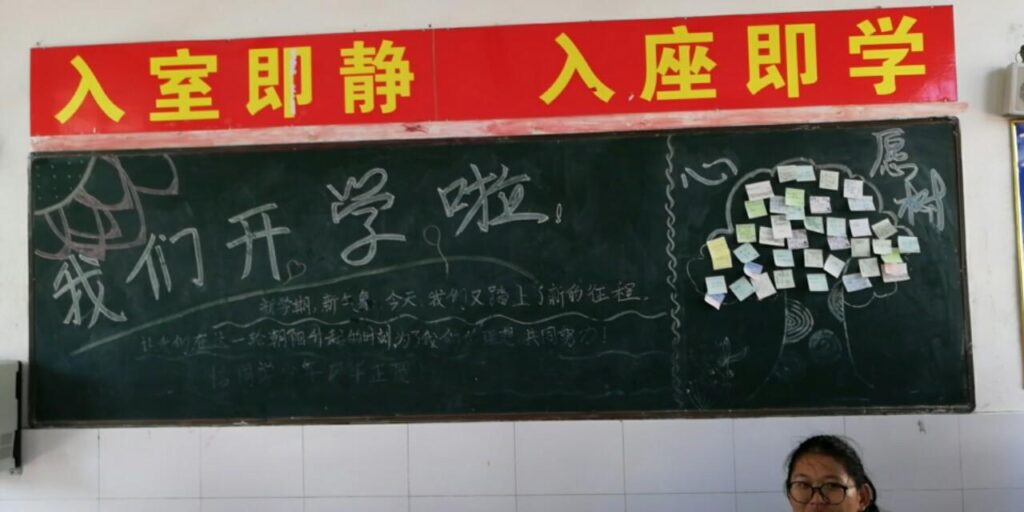 入室即静 入座即学
我们开学啦!
心愿树
新学期,新气象,今天我们又踏上了新的征程,
让我们在这一轮朝阳升起的时刻,为了我们的理想共同努力!